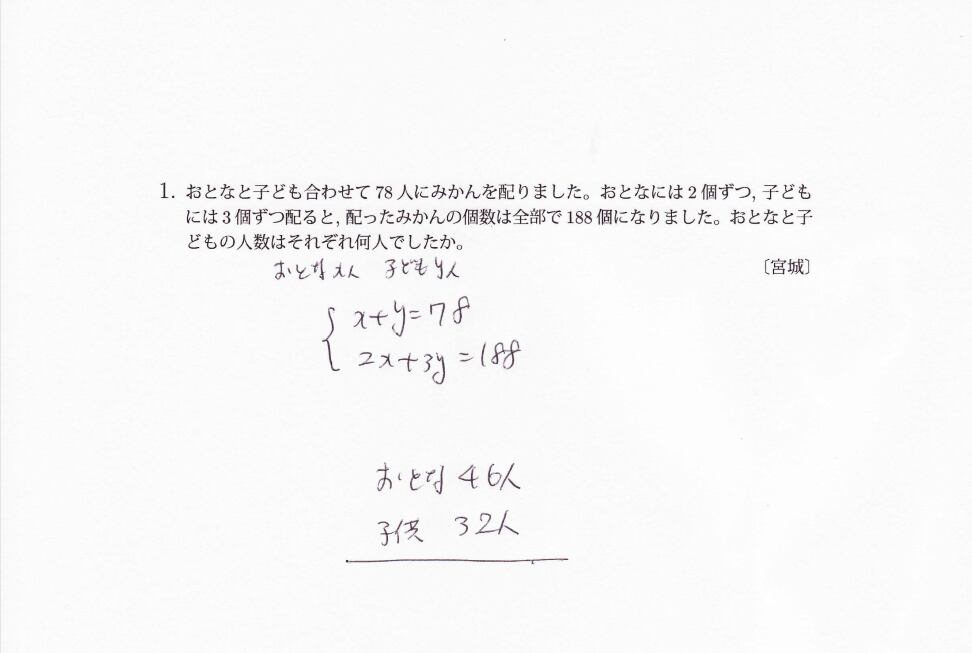 1. おとなと子ども合わせて78人にみかんを配りました。おとなには2個ずつ, 子ども
には3個ずつ配ると, 配ったみかんの個数は全部で188個になりました。おとなと子
どもの人数はそれぞれ何人でしたか。
〔宮城〕
おとなx人 子どもy人
x+y=78
2x+3y=188
おとな 46人
子供 32人